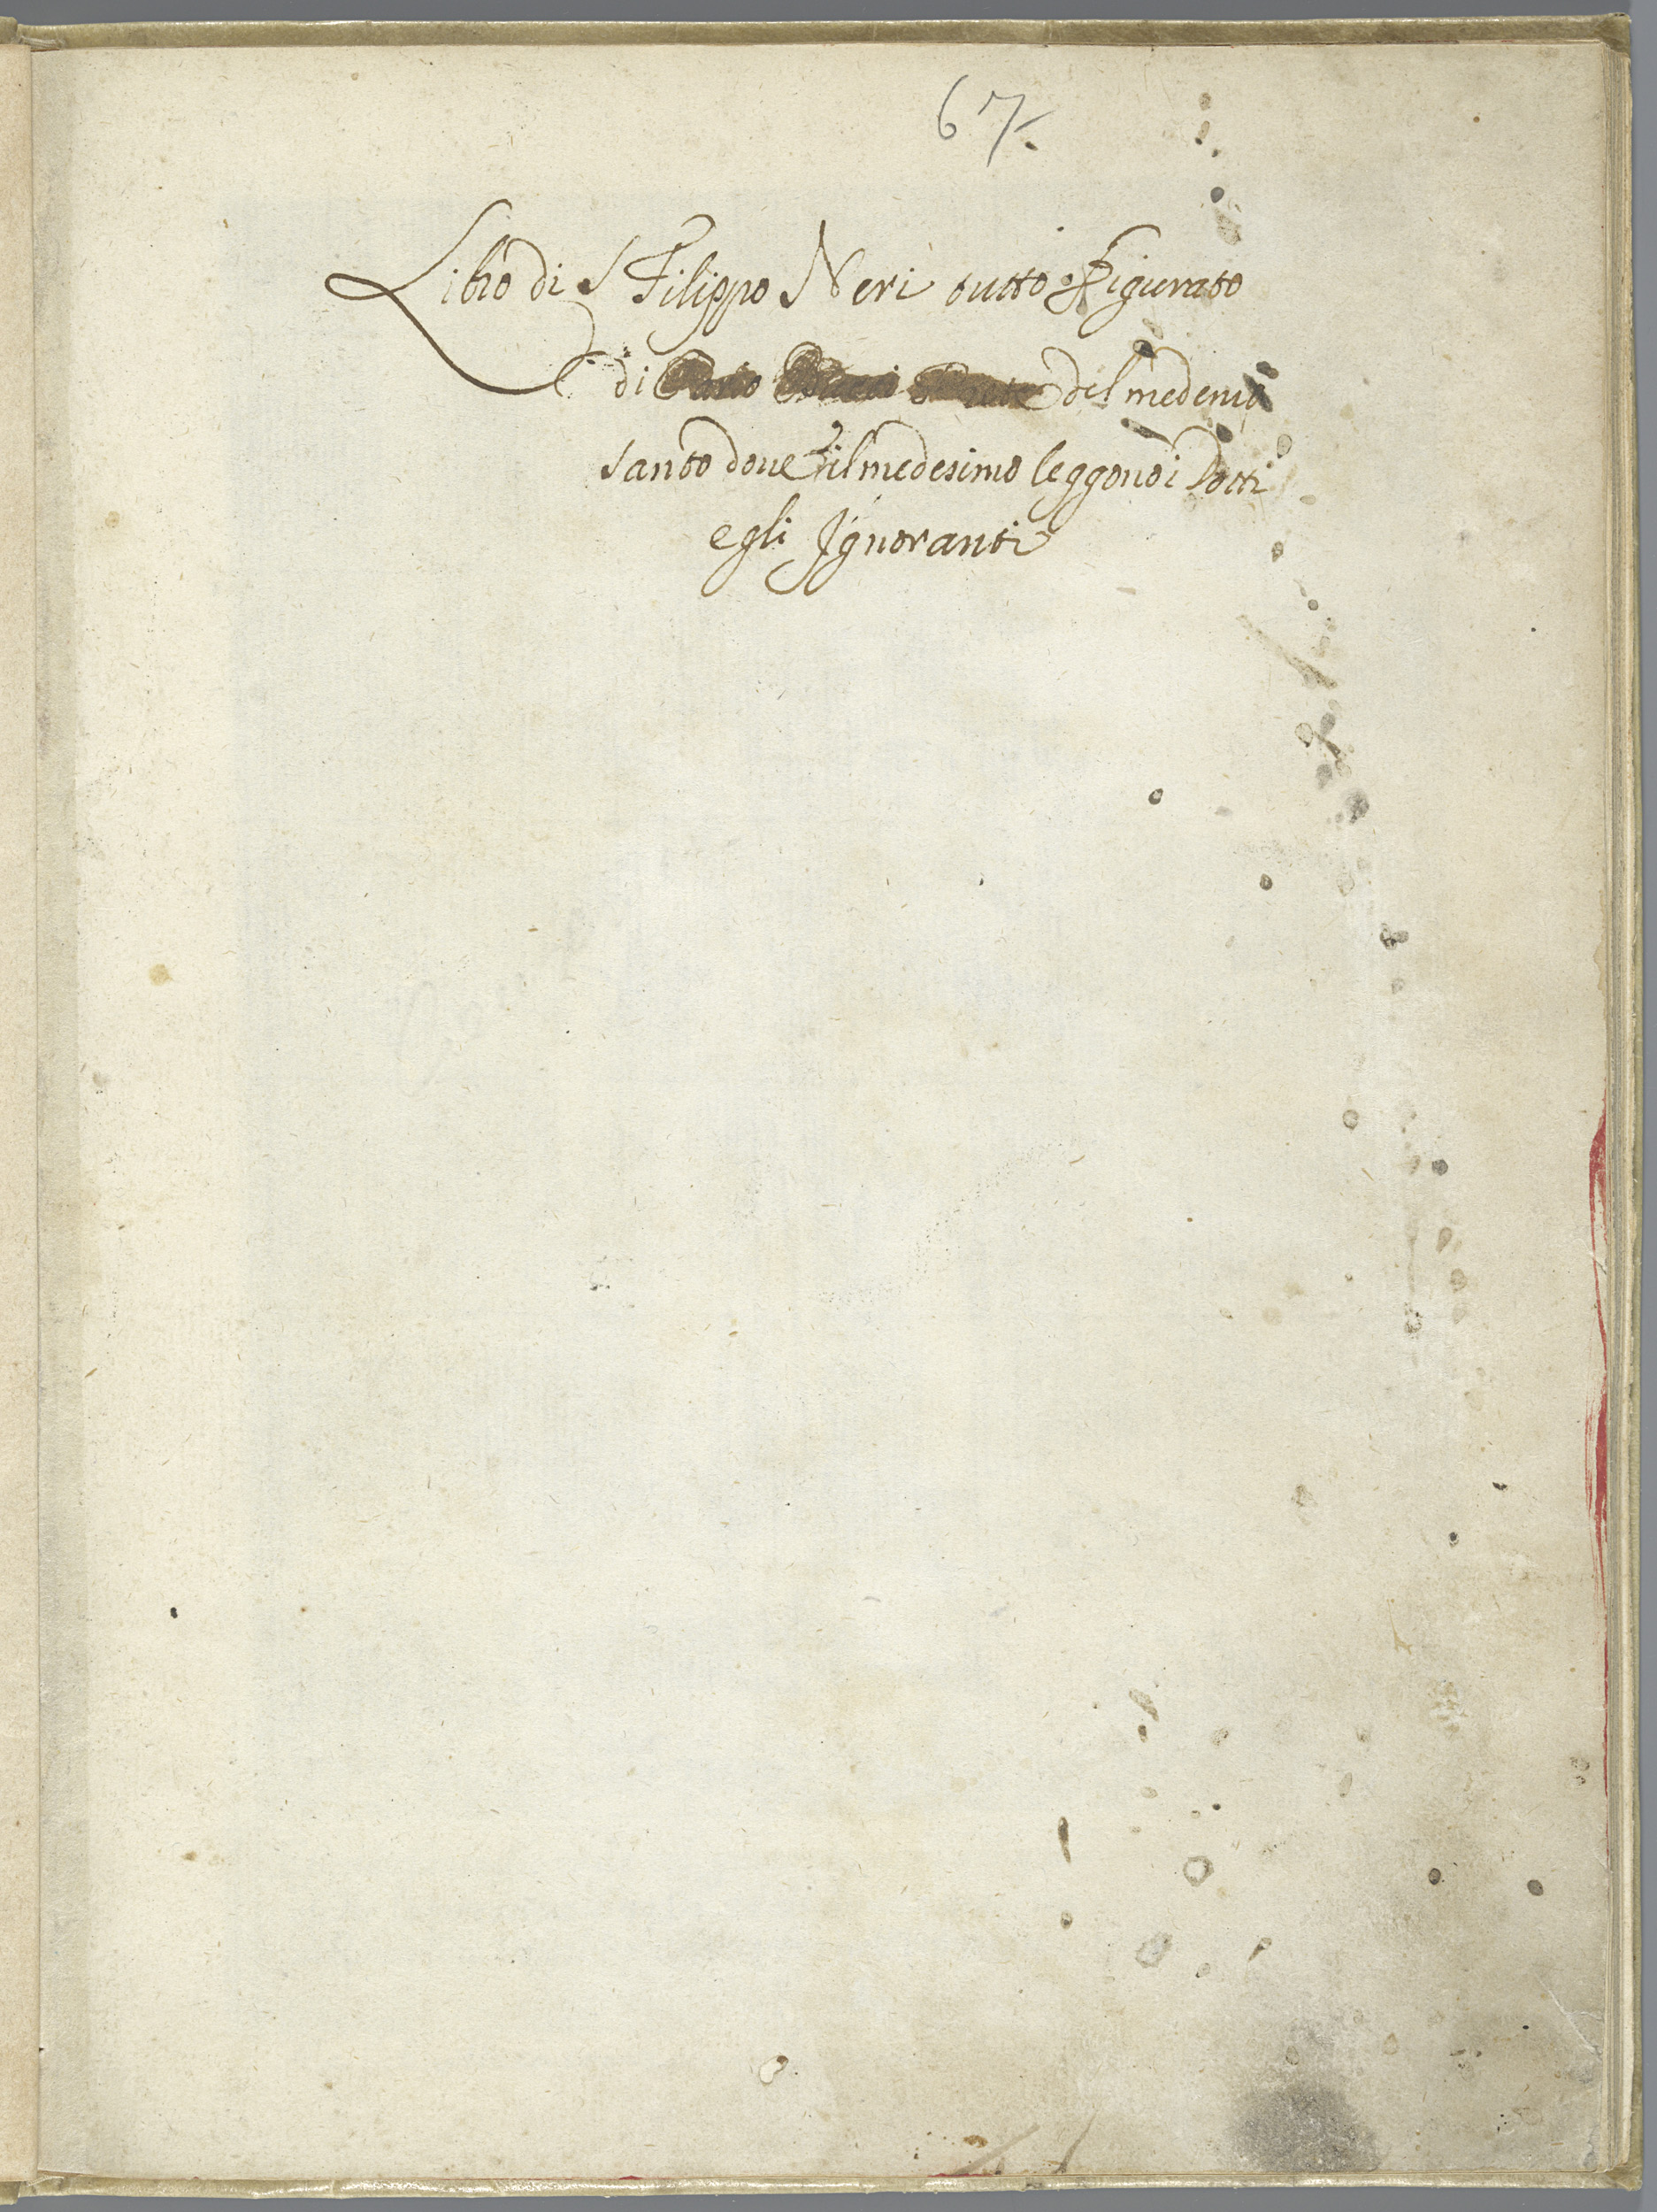 67
Libro di S Filippo Neri tutto figurato
di del medemo
santo doue il medesimo leggono i Dotti
e gli Ignoranti